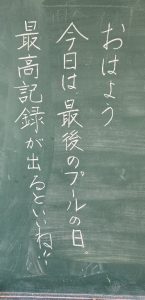 おはよう
今日は最後のプールの日。
最高記録が出るといいね!!